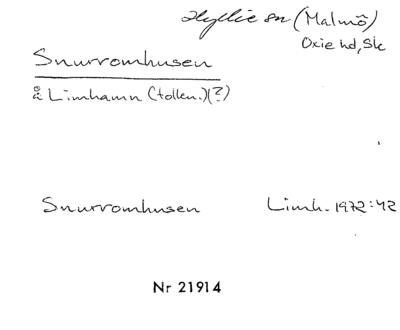 Hyllie sn (Malmö)
Oxie hd, Sk
Snurromhusen
å Limhamn (tollen.)(?)
Snurromhusen Limh. 1972:42
Nr 21914